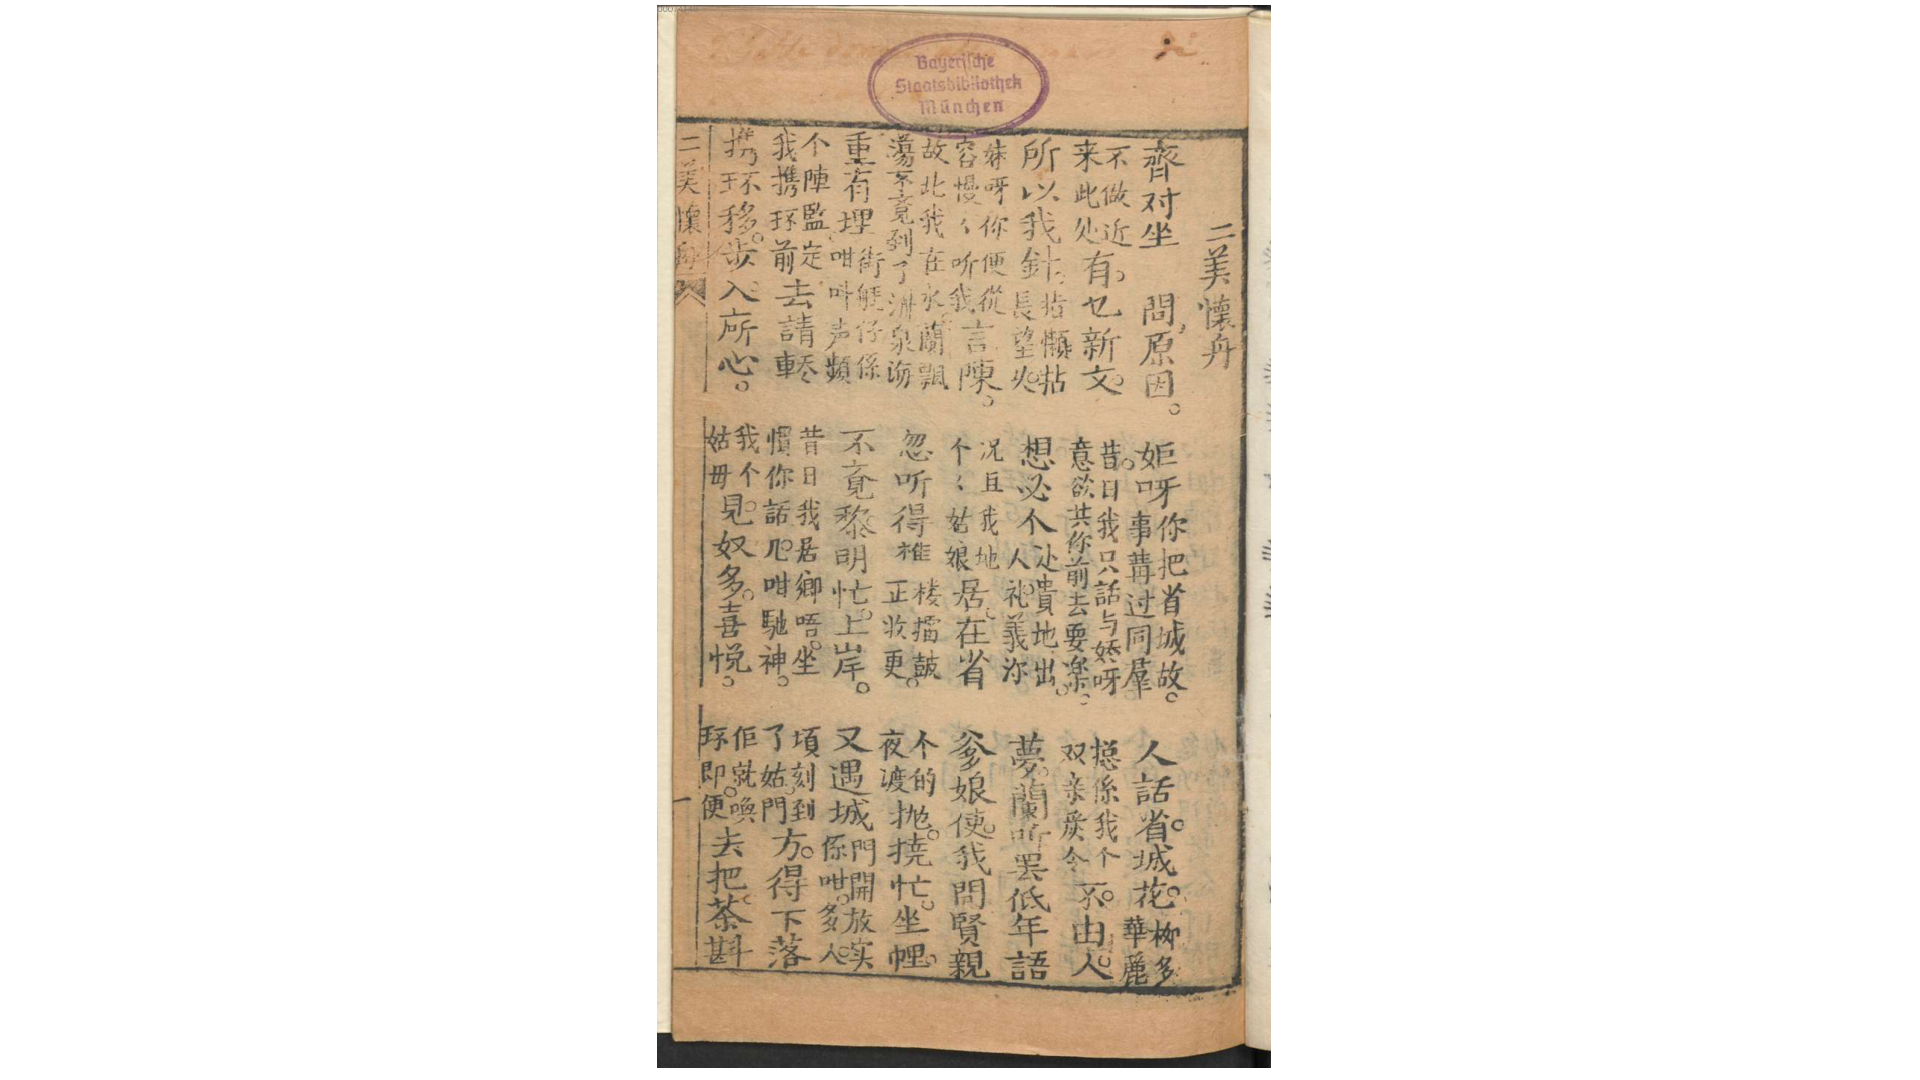 Bayerische
Staatsbibliothek
München
二美懷舟
齊对坐 問原因。姖呀你把省城故事講过同羣。人話省。城花。柳多華麗
不做近来此处有乜新文。昔日我只話与嬌呀意欲共你前去耍樂。總係我个双亲嚴令不由人
所以我針黹懶拈長望 想必个处貴地出人礼義 夢蘭听罢低年語
妹呀你便從容慢〻听我言陳。况且我地个〻姑娘居在省 爹娘使我問賢親
故此我在永蘭飄蕩 竟到了 海 忽听得樵楼擂鼓正收更。个的夜渡抛撓忙坐哩
重有埋街艇仔係咁叫声頻 不竟黎明忙上岸。又遇城門開放实係咁多人
个陣監定我携环前去請轎 昔日我居鄉唔坐慣你話 咁馳神。頃刻到了姑門方得下落
携环移步入所心。我个姑母見奴多喜悦。佢就喚环即便去把茶斟
二美懷舟 一